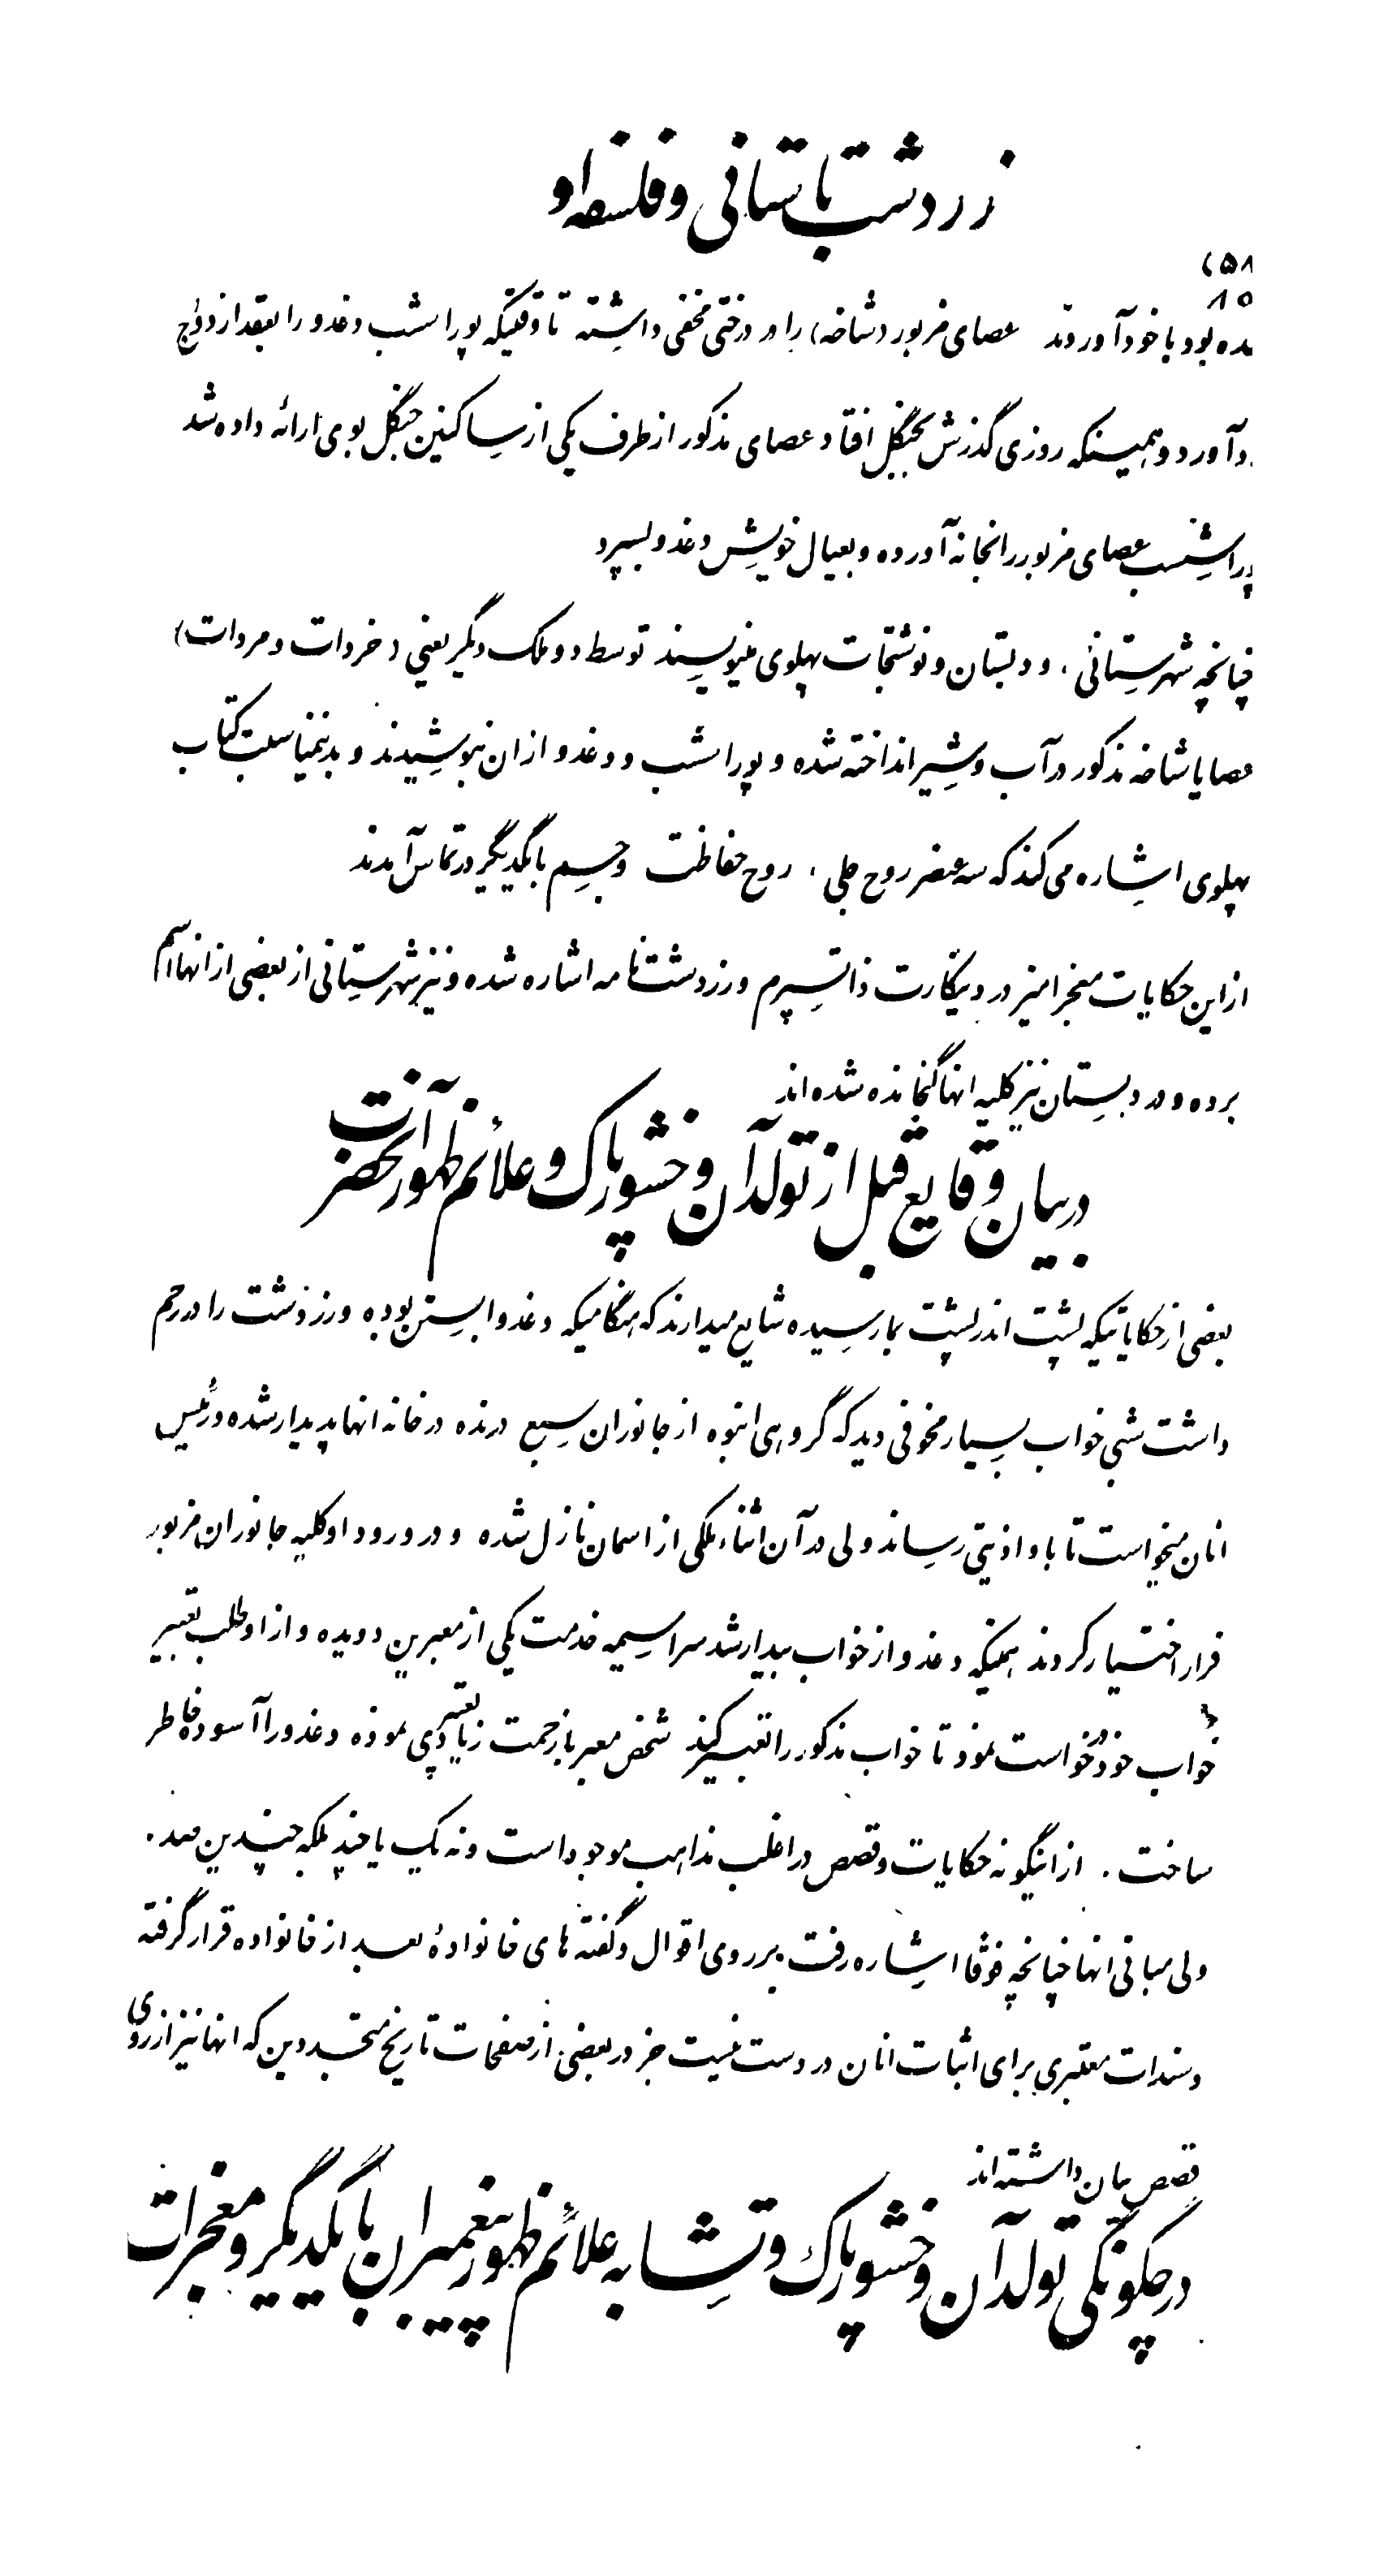 زردشت باستانی و فلسفه او
(۵۸
۸۵
ده بود با خود آوردند عصای مزبور (شاخه) را در درختی مخفی داشته تا وقتیکه پوراشسب دغدو را بعقد ازدواج
درآورد و همینکه روزی گذرش بجنگل افتاد عصای مذکور از طرف یکی از ساکنین جنگل بوی ارائه داده شد
پوراشسب عصای مزبور را بخانه آورده و بعیال خویش دغدو بسپرد
چنانچه شهرستانی، و دبستان و نوشتجات پهلوی مینویسند توسط دو ملک دیگر یعنی (خردات و مردات)
عصا یا شاخه مذکور در آب و شیر انداخته شده و پوراشسب و دغدو از ان بنوشیدند و بدینمناسبت کتاب
پهلوی اشاره می کند که سه عنصر روح جلی، روح حفاظت و جسم با یکدیگر در تماس آمدند
از این حکایات معجز امیز در دینکارت ذاتسپرم و زردشت نامه اشاره شده و نیز شهرستانی از بعضی از انها اسم
برده و در دبستان نیز کلیه انها گنجانده شده اند
در بیان وقایع قبل از تولد آن وخشور پاک و علائم ظهور آنحضرت
بعضی از حکایاتیکه پشت اندر پشت بما رسیده شایع میدارند که هنگامیکه دغدو ابستن بوده و زرذشت را در رحم
داشت شبی خواب بسیار مخوفی دید که گروهی انبوه از جانوران سبع درنده در خانه انها پدیدار شده و رئیس
انان میخواست تا باو اذیتی رساند ولی در آن اثناء ملکی از اسمان نازل شده و در ورود او کلیه جانوران مزبور
فرار اختیار کردند همینکه دغدو از خواب بیدار شد سراسیمه خدمت یکی از معبرین دویده و از او طلب تعبیر
خواب خود و خواست نمود تا خواب مذکور را تعبیر کند شخص معبر با زحمت زیاد تعبیر پی نموده دغدو را آسوده خاطر
ساخت. از اینگونه حکایات و قصص در اغلب مذاهب موجود است و نه یک یا چند بلکه چندین صد.
ولی مبانی انها چنانچه فوقا اشاره رفت بر روی اقوال و گفته های خانواده بعد از خانواده قرار گرفته
و سندات معتبری برای اثبات انان در دست نیست جز در بعضی از صفحات تاریخ متجددین که انها نیز از روی
قصص بیان داشته اند
در چگونگی تولد آن وخشور پاک و تشابه علائم ظهور پیغمبران با یکدیگر و معجزات